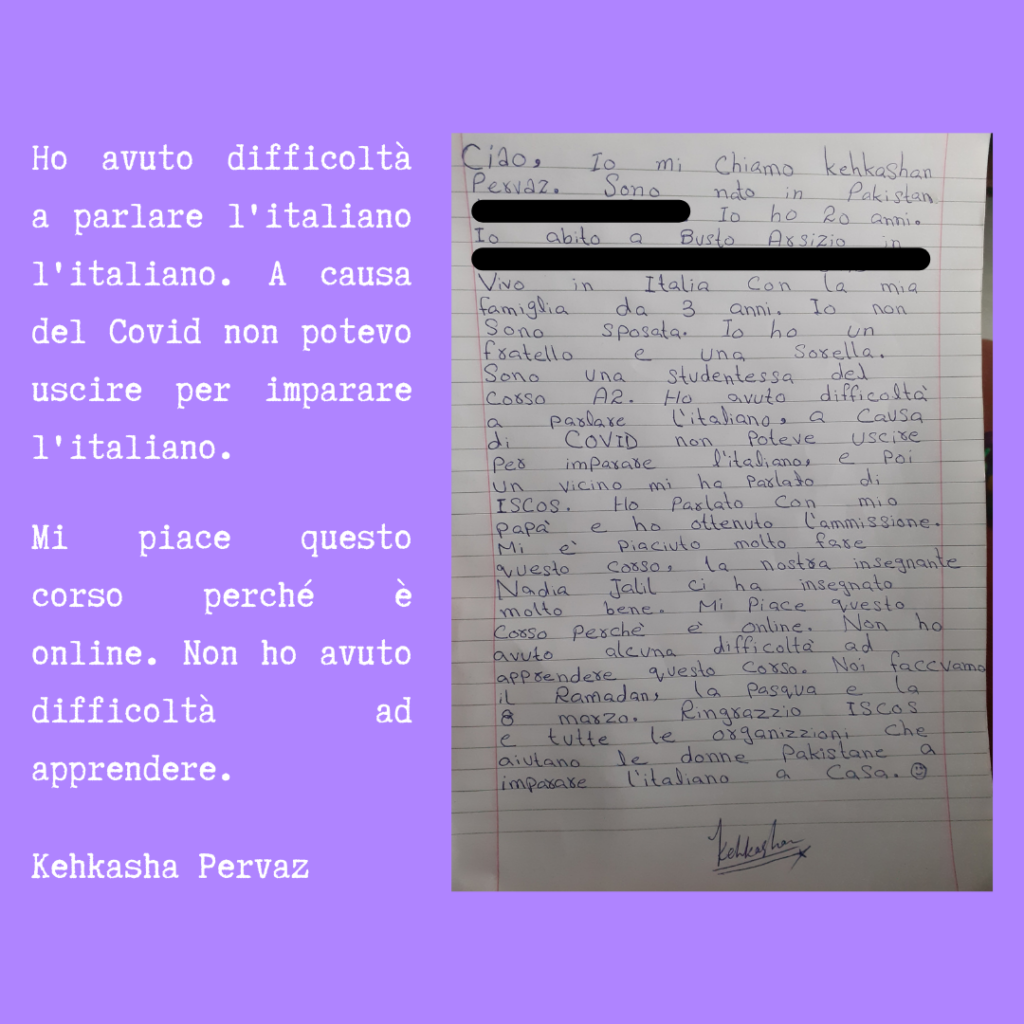 Ho avuto difficoltà
a parlare l'italiano
l'italiano. A causa
del Covid non potevo
uscire per imparare
l'italiano.
Mi piace questo
corso perché è
online. Non ho avuto
difficoltà ad
apprendere.
Kehkasha Pervaz
Ciao, Io mi chiamo kehkashan
Pervaz. Sono nato in Pakistan.
Io ho 20 anni.
Io abito a Busto Arsizio in
Vivo in Italia con la mia
famiglia da 3 anni. Io non
Sono sposata. Io ho un
fratello e una sorella.
Sono una studentessa del
corso A2. Ho avuto difficoltà
a parlare l'italiano, a causa
di COVID non poteve uscire
per imparare l'italiano, e poi
un vicino mi ha parlato di
ISCOS. Ho parlato con mio
papà e ho ottenuto l'ammissione.
Mi è piaciuto molto fare
questo corso, la nostra insegnante
Nadia Jalil ci ha insegnato
molto bene. Mi piace questo
corso perchè è online. Non ho
avuto alcuna difficoltà ad
apprendere questo corso. Noi faccvamo
il Ramadan, la pasqua e la
8 marzo. Ringrazzio ISCOS
e tutte le organizzioni che
aiutano le donne pakistane a
imparare l'italiano a casa. ☺
Kehkashan